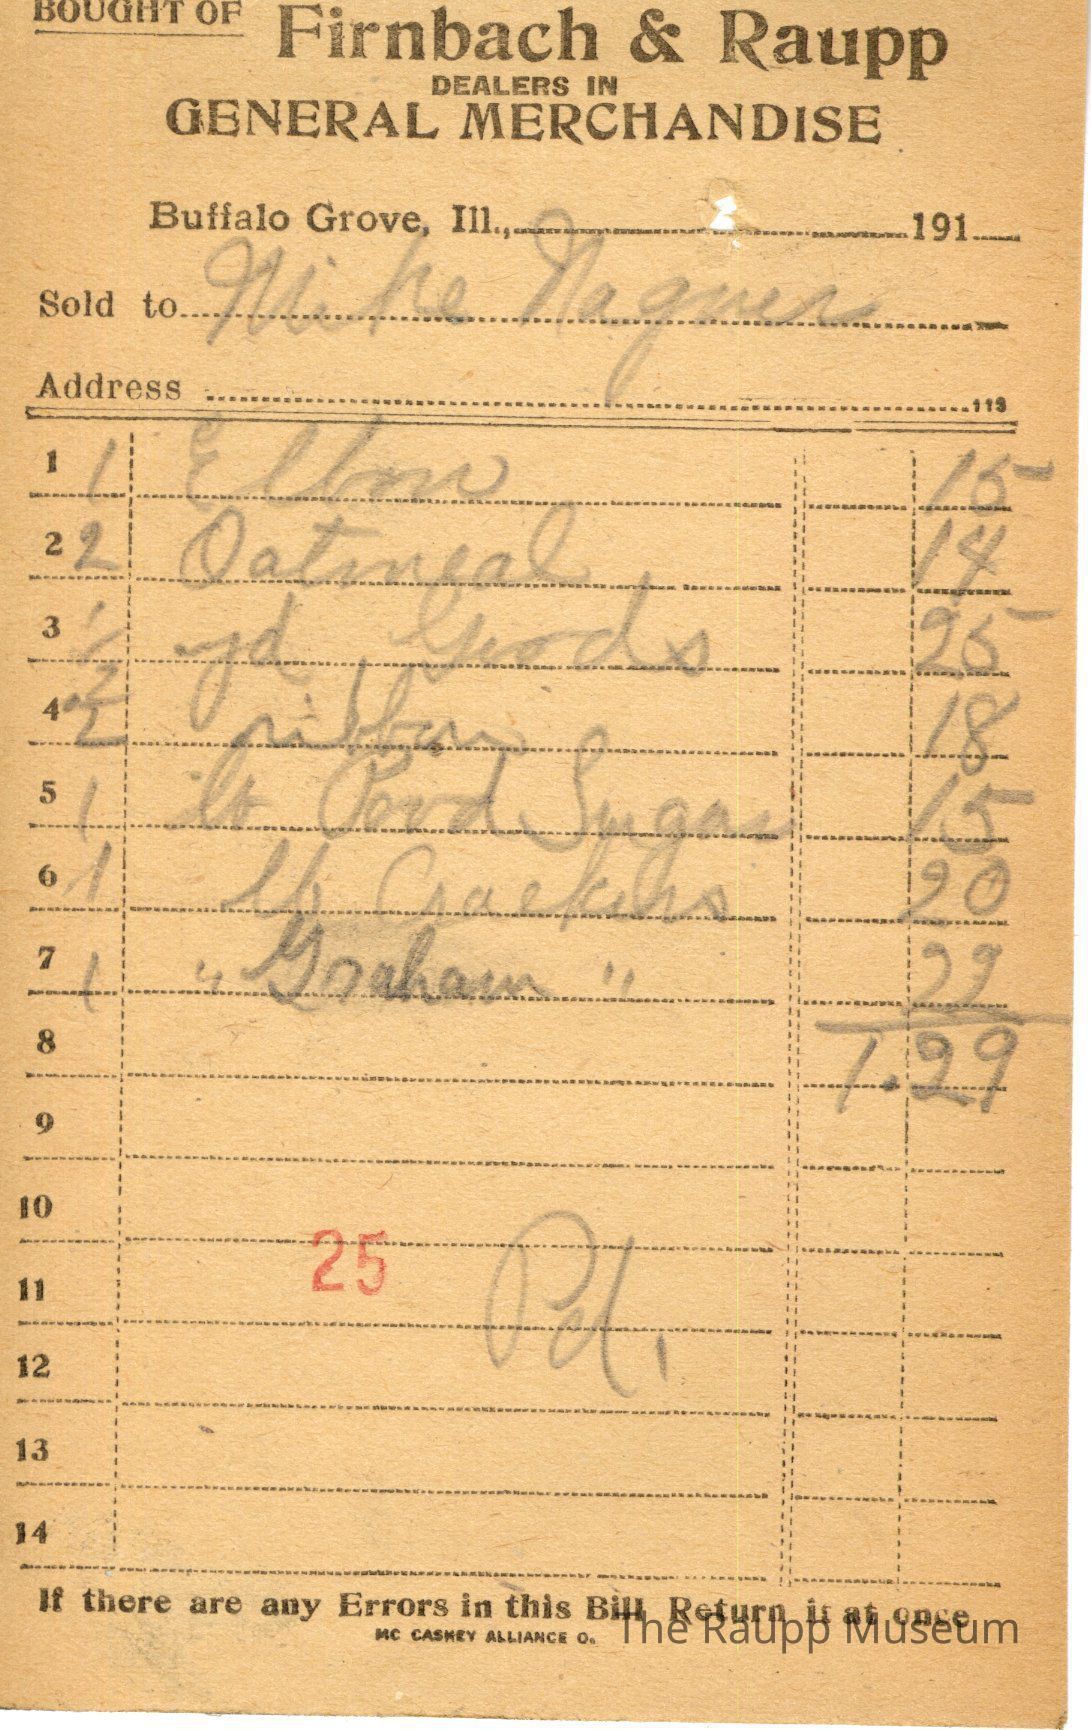 BOUGHT OF Firnbach & Raupp
DEALERS IN
GENERAL MERCHANDISE
Buffalo Grove, Ill., 191
Sold to Mike Wagner
Address 113
1 1 15
2 2 Oatmeal 14
3 1/2 yd Goods 25
4 2 ribbon 18
5 1 lb Powd Sugar 15
6 1 lb Crackers 20
7 1 " Graham " 22
8 1.29
9
10
25
11 Pd.
12
13
14
If there are any Errors in this Bill Return it at once
MC CASKEY ALLIANCE O.
The Raupp Museum